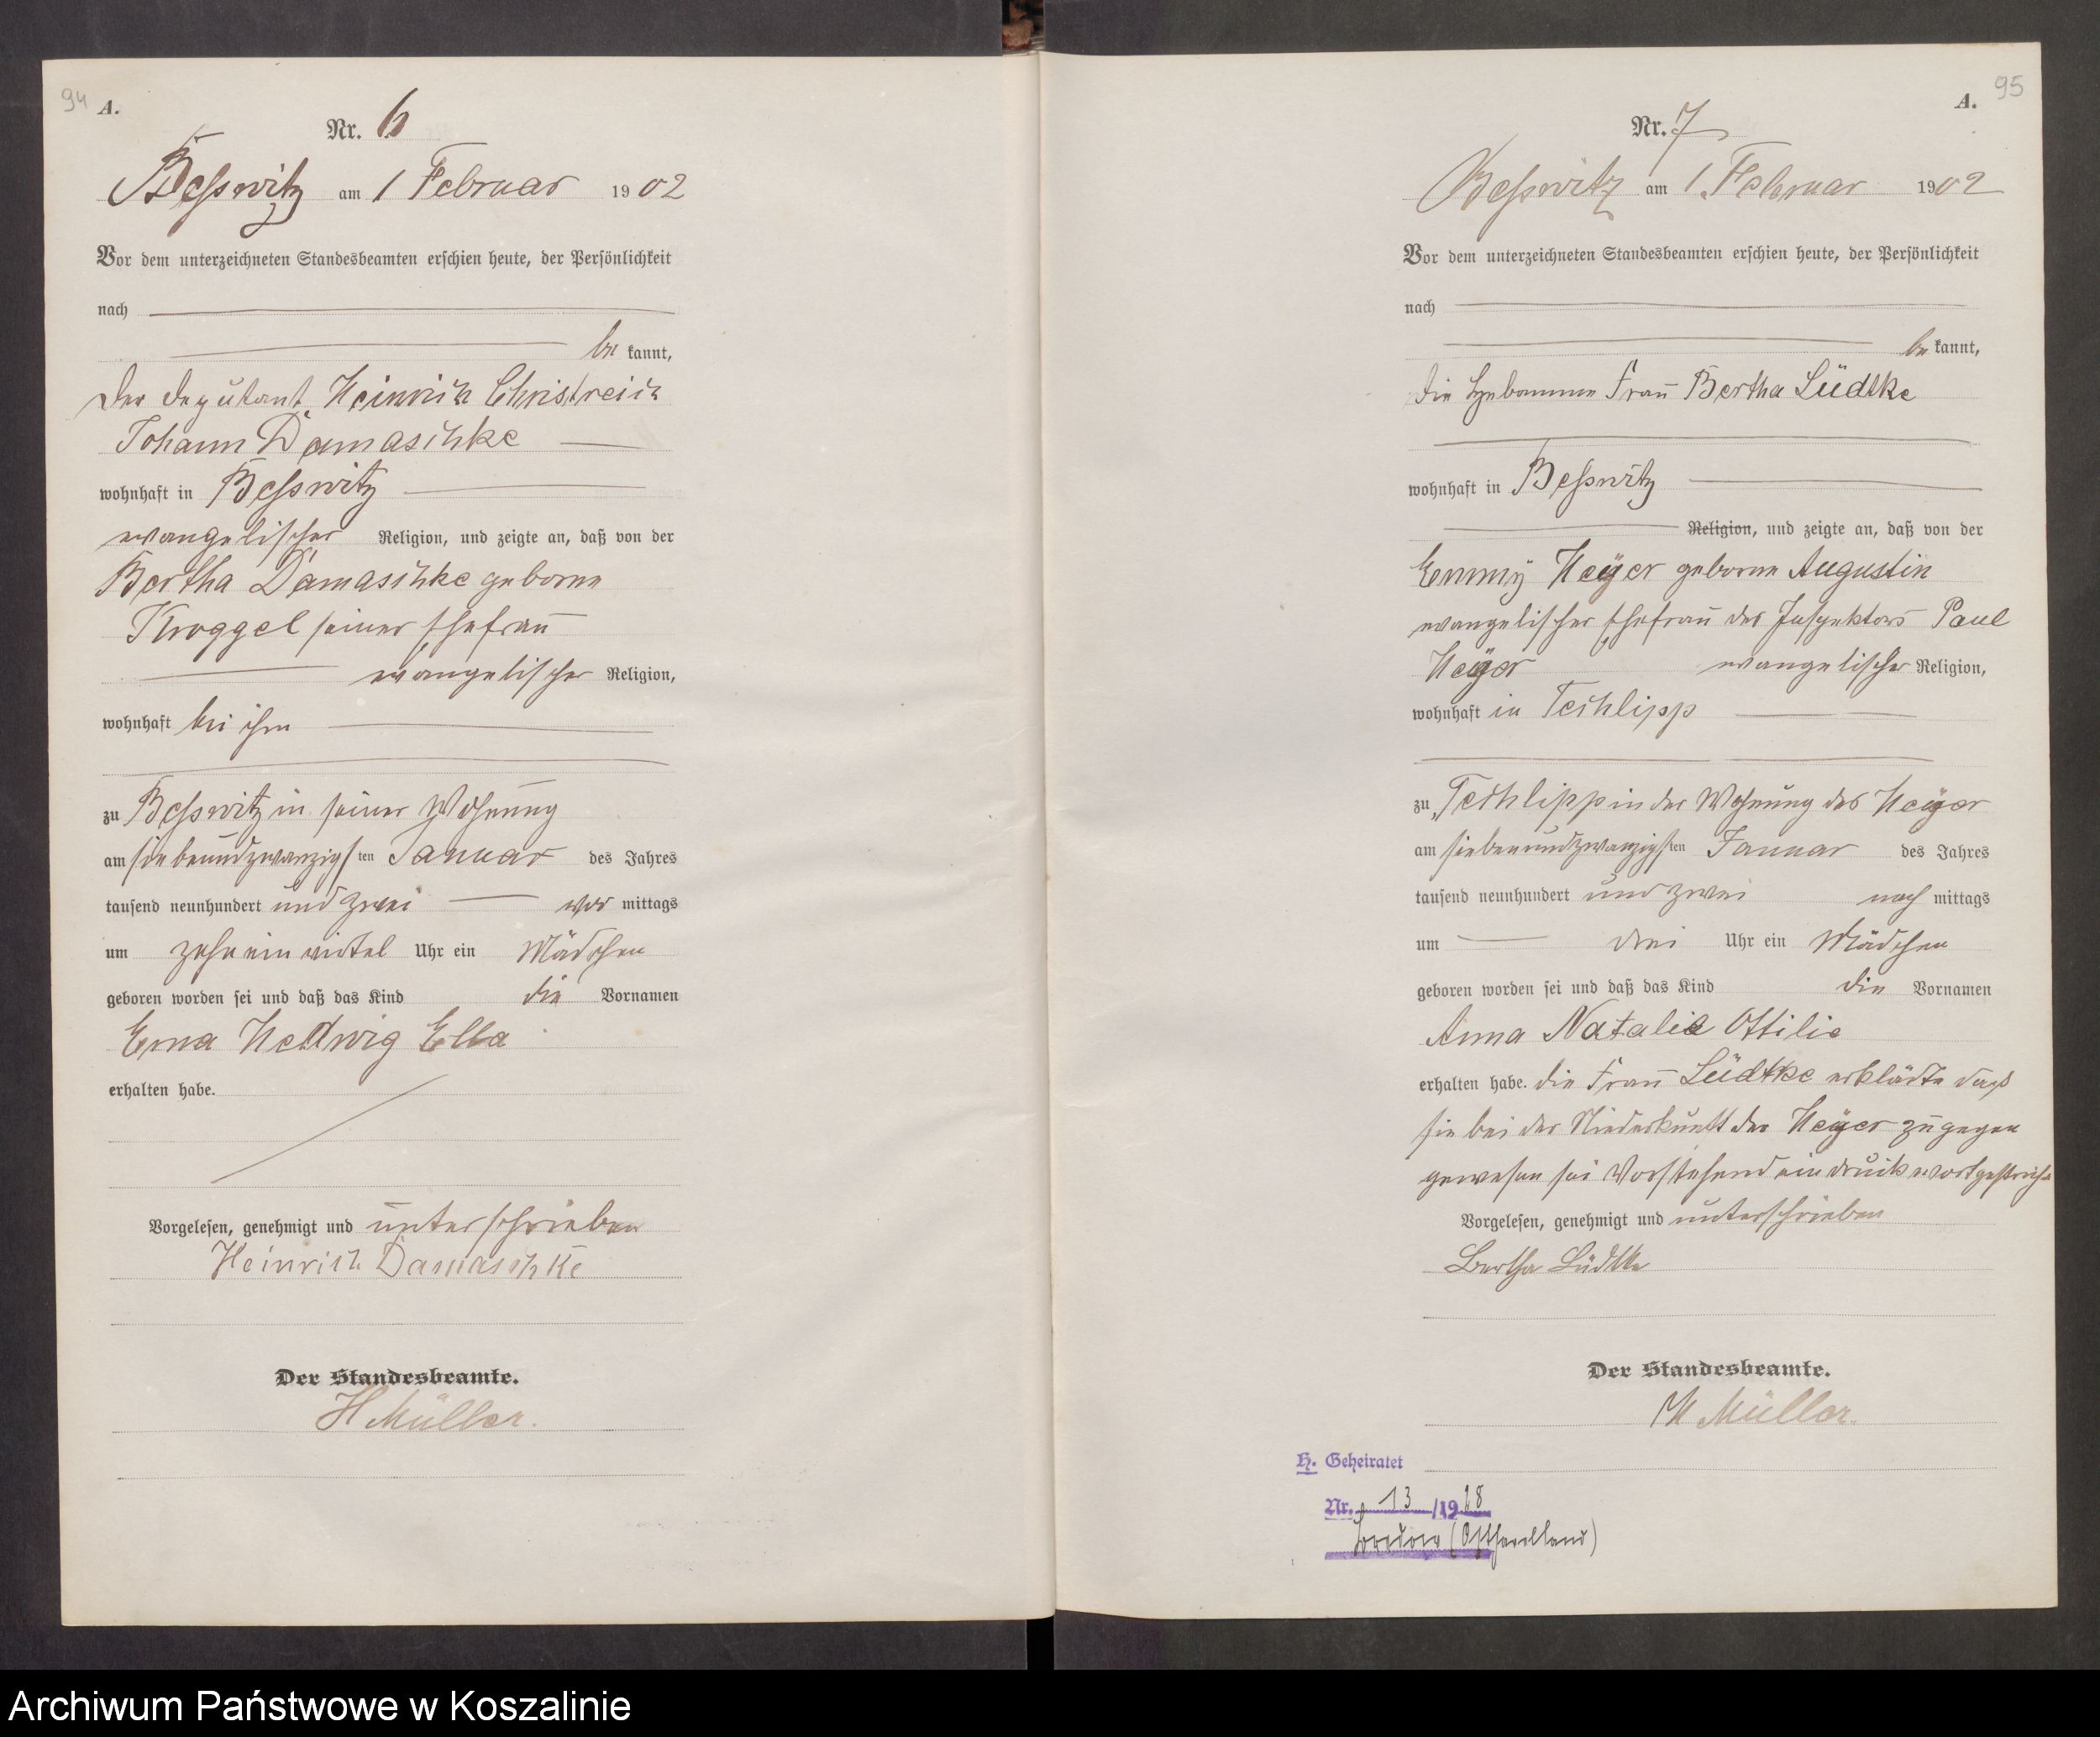 94 A.
Nr. 6
Beßwitz am 1 Februar 1902
Vor dem unterzeichneten Standesbeamten erschien heute, der Persönlichkeit
nach
be kannt,
der Deputant Heinrich Christreich
Johann Damaschke
wohnhaft in Beßwitz
evangelischer Religion, und zeigte an, daß von der
Bertha Damaschke geborne
Kroggel seiner Ehefrau
evangelischer Religion,
wohnhaft bei ihm
zu Beßwitz in seiner Wohnung
am siebenundzwanzigsten Januar des Jahres
tausend neunhundert und zwei vor mittags
um zehn ein viertel Uhr ein Mädchen
geboren worden sei und daß das Kind die Vornamen
Erna Hedwig Ella
erhalten habe.
Vorgelesen, genehmigt und unterschrieben
Heinrich Damaschke
Der Standesbeamte.
H Müller.
A. 95
Nr. 7
Beßwitz am 1. Februar 1902
Vor dem unterzeichneten Standesbeamten erschien heute, der Persönlichkeit
nach
be kannt,
die Hebamme Frau Bertha Lüdtke
wohnhaft in Beßwitz
Religion, und zeigte an, daß von der
Emmy Heyer geborne Augustin
evangelischer Ehefrau des Inspektors Paul
Heyer evangelischer Religion,
wohnhaft in Techlipp
zu Techlipp in der Wohnung des Heyer
am siebenundzwanzigsten Januar des Jahres
tausend neunhundert und zwei nach mittags
um drei Uhr ein Mädchen
geboren worden sei und daß das Kind die Vornamen
Anna Natalie Ottilie
erhalten habe. die Frau Lüdtke erklärte daß
sie bei der Niederkunft der Heyer zugegen
gewesen sei Vorstehend ein druckwort gestrichen
Vorgelesen, genehmigt und unterschrieben
Bertha Lüdtke
Der Standesbeamte.
H Müller.
H. Geheiratet
Nr. 13 /19
(Osthavelland)
Archiwum Państwowe w Koszalinie